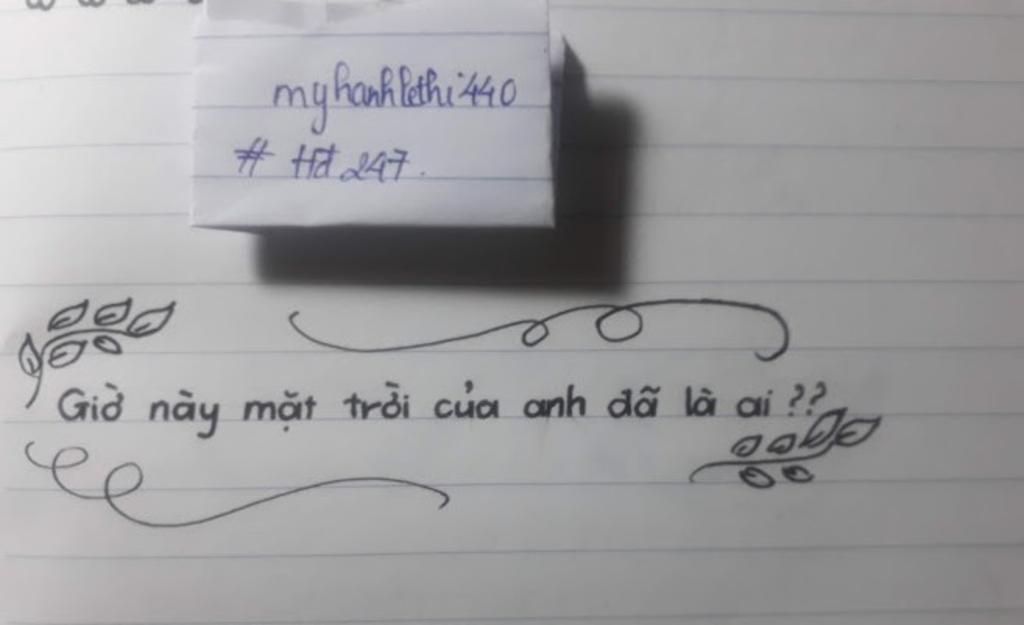 myhanhlethi440
# Hđ 247.
Giờ này mặt trời của anh đã là ai ??